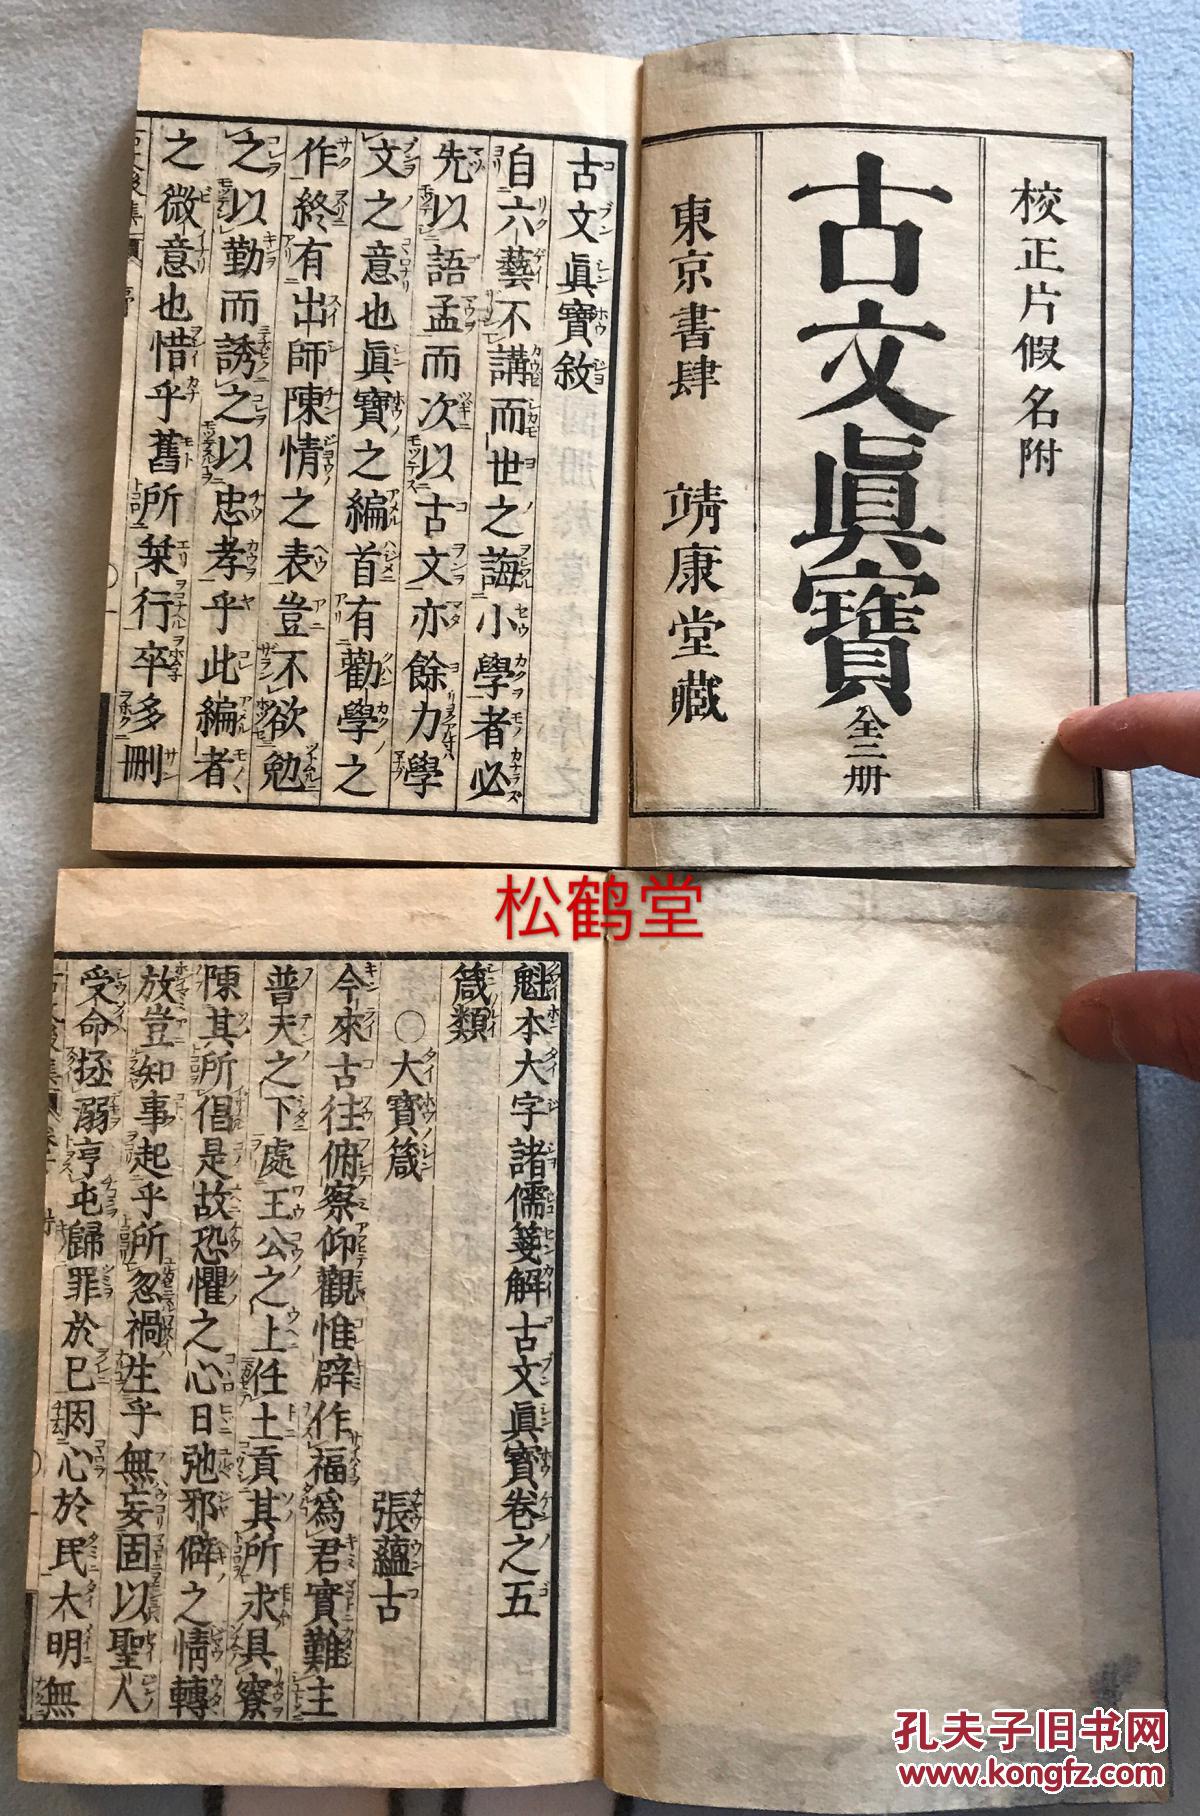 校正片假名附
古文眞寶
全二册
東京書肆 靖康堂藏
古文眞寶敘
自六藝不講而世之誨小學者必
先以語孟而次以古文亦餘力學
文之意也眞寶之編首有勸學之
作終有出師陳情之表豈不欲勉
之以勤而誘之以忠孝乎此編者
之微意也惜乎舊所栞行卒多刪
松鹤堂
魁本大字諸儒箋解古文眞寶卷之五
箴類
〇大寶箴 張蘊古
今來古往俯察仰觀惟辟作福爲君實難主
普天之下處王公之上任土貢其所求具寮
陳其所倡是故恐懼之心日弛邪僻之情轉
放豈知事起乎所忽禍生乎無妄固以聖人
受命拯溺亨屯歸罪於已因心於民大明無
孔夫子旧书网
www.kongfz.com